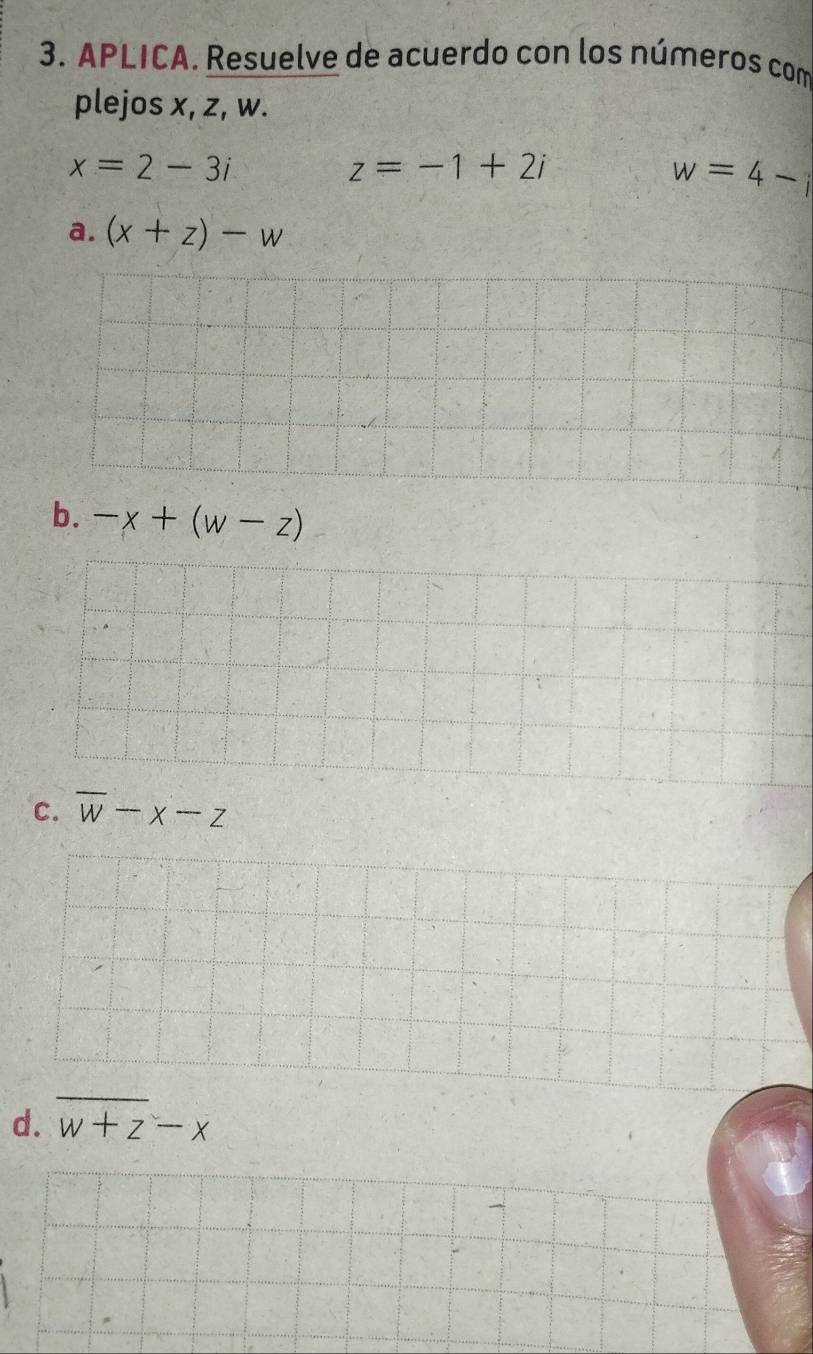 3. APLICA. Resuelve de acuerdo con los números com
plejos x, z, w.
x = 2 − 3i z = −1 + 2i w = 4 − i
a. (x + z) − w
b. −x + (w − z)
c. w̅ − x − z
d. w̅ ̅+̅ ̅z̅ − x